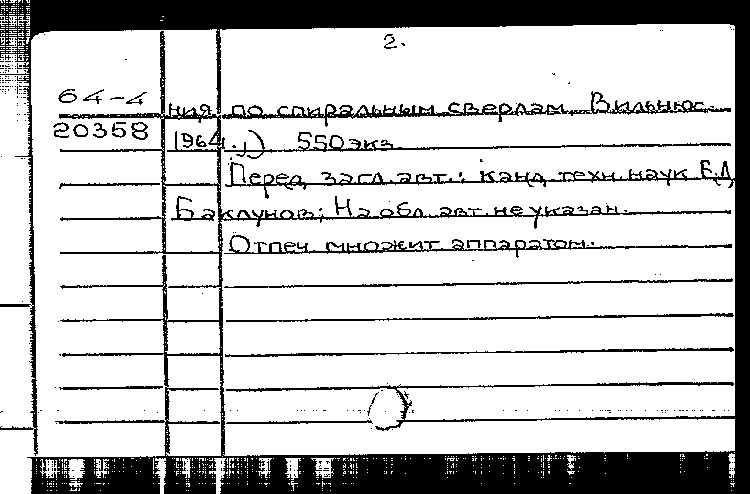 2.
64-4 ния по спиральным сверлам. Вильнюс.
20358 1964.,) 550 экз.
Перед загл. авт.: канд. техн. наук Е.Д.
Баклунов; На обл. авт. не указан.
Отпеч. множит. аппаратом.